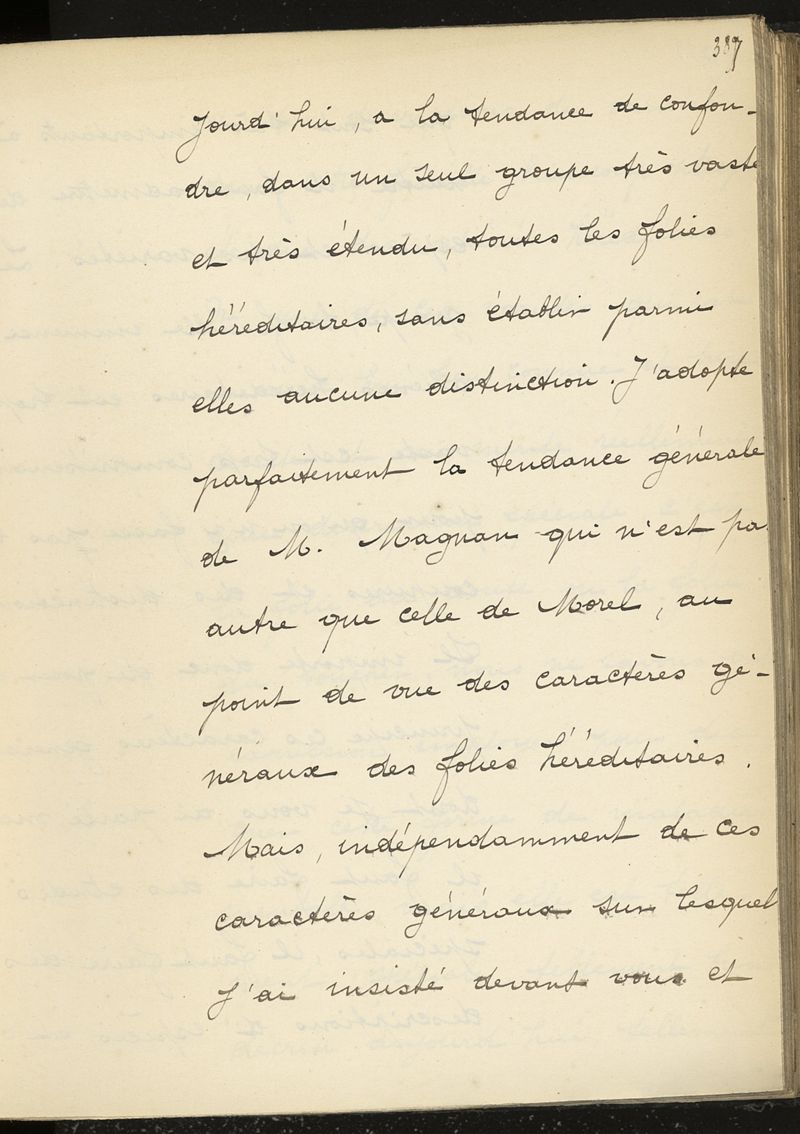 387
jourd'hui, a la tendance de confon-
dre, dans un seul groupe très vaste
et très étendu, toutes les folies
héréditaires, sans établir parmi
elles aucune distinction. J'adopte
parfaitement la tendance générale
de M. Magnan qui n'est pa
autre que celle de Morel, au
point de vue des caractères gé-
néraux des folies héréditaires.
Mais, indépendamment de ces
caractères généraux sur lesquel
j'ai insisté devant vous et